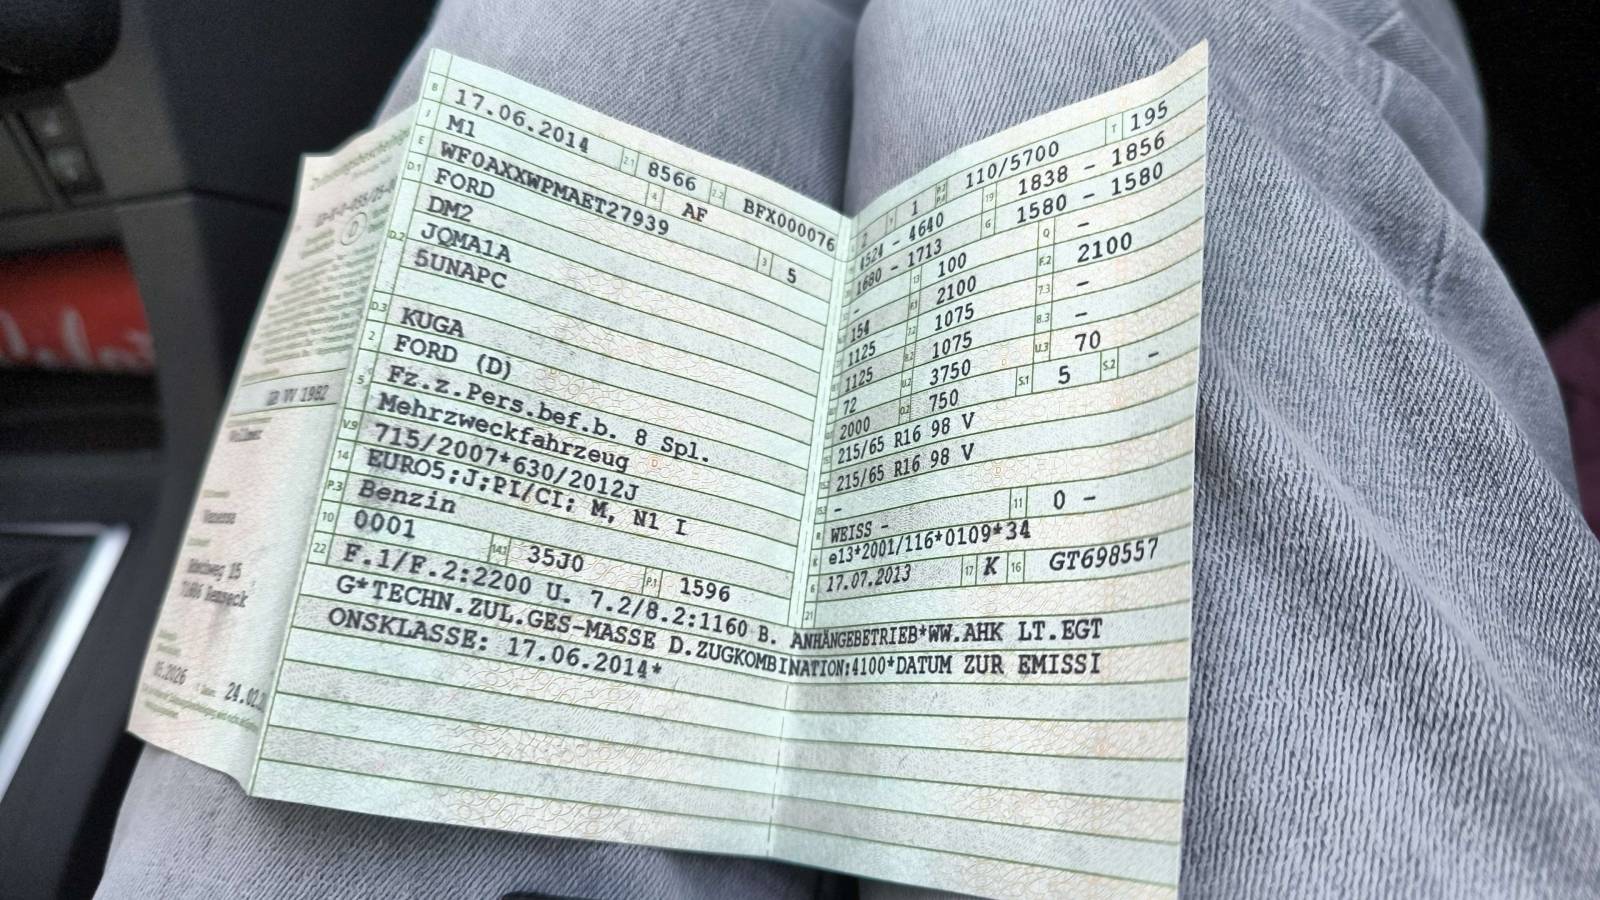 B 17.06.2014 2.1 8566 2.2 BFX000076
J M1 4 AF
E WF0AXXWPMAET27939 3 5
D.1 FORD
D.2 DM2
JQMA1A
5UNAPC
D.3 KUGA
2 FORD (D)
5 Fz.z.Pers.bef.b. 8 Spl.
Mehrzweckfahrzeug
V.9 715/2007*630/2012J
14 EURO5;J;PI/CI; M, N1 I
P.3 Benzin
10 0001 14.1 35J0 P.1 1596
22 F.1/F.2:2200 U. 7.2/8.2:1160 B. ANHÄNGEBETRIEB*WW.AHK LT.EGT
G*TECHN.ZUL.GES-MASSE D.ZUGKOMBINATION:4100*DATUM ZUR EMISSI
ONSKLASSE: 17.06.2014*
1 110/5700 T 195
4524 - 4640 19 1838 - 1856
1680 - 1713 G 1580 - 1580
- 13 100 Q -
154 2100 F.2 2100
1125 1075 7.3 -
1125 1075 8.3 -
72 U.2 3750 U.3 70
2000 O.2 750 S.1 5 S.2 -
215/65 R16 98 V
215/65 R16 98 V
-
R WEISS - 11 0 -
K e13*2001/116*0109*34
6 17.07.2013 17 K 16 GT698557
21
24.02.